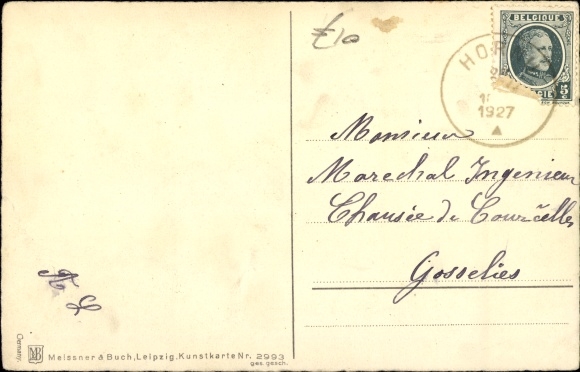 £10
BELGIQUE
5c
HOR
1927
Monsieur
Marechal Ingenieur
Chausée de Courcelles
Gosselies
Germany.
MB
Meissner & Buch, Leipzig, Kunstkarte Nr. 2993
ges. gesch.